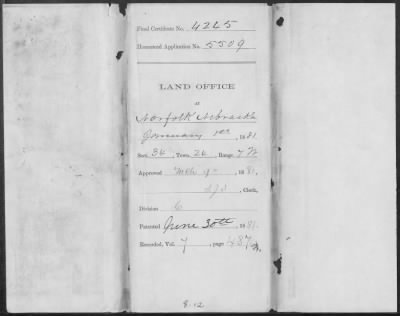 Final Certificate No. 4245
Homestead Application No. 5509
LAND OFFICE
AT
Norfolk Nebraska
January 1st, 1881.
Sect. 34, Town. 26, Range 7 W
Approved Mch 9th, 1881,
, Clerk,
Division C
Patented June 30th, 1881.
Recorded, Vol. 7, page 487
8-12